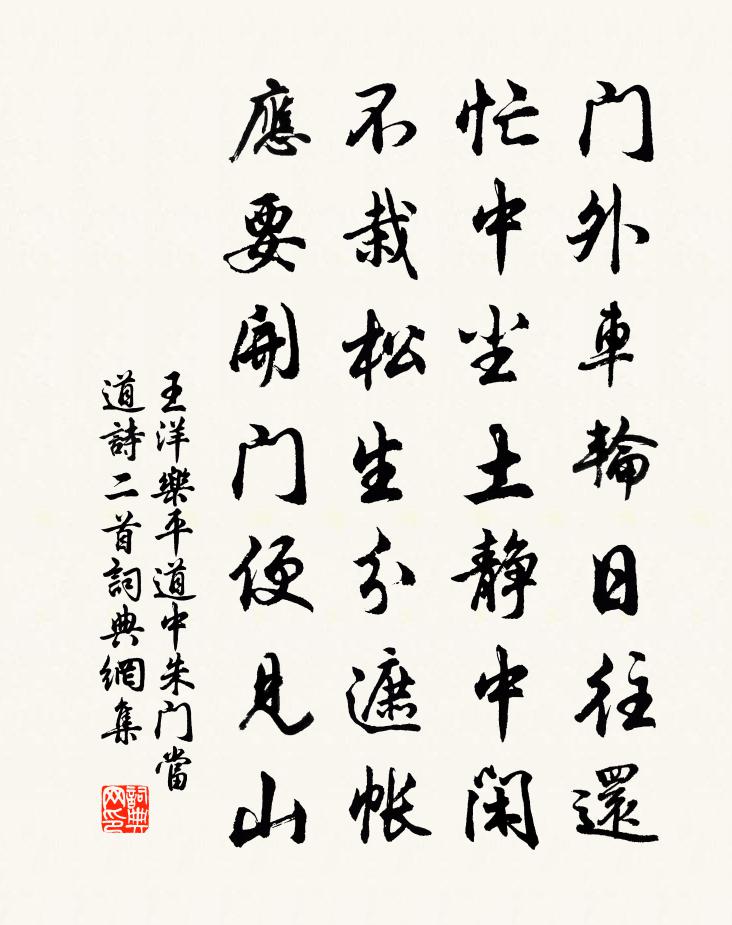 门外車輪日往還
忙中尘土静中闲
不栽松生分遮帐
應要開门便見山
王洋樂平道中朱门當
道詩二首詞典網集
詞典
网印